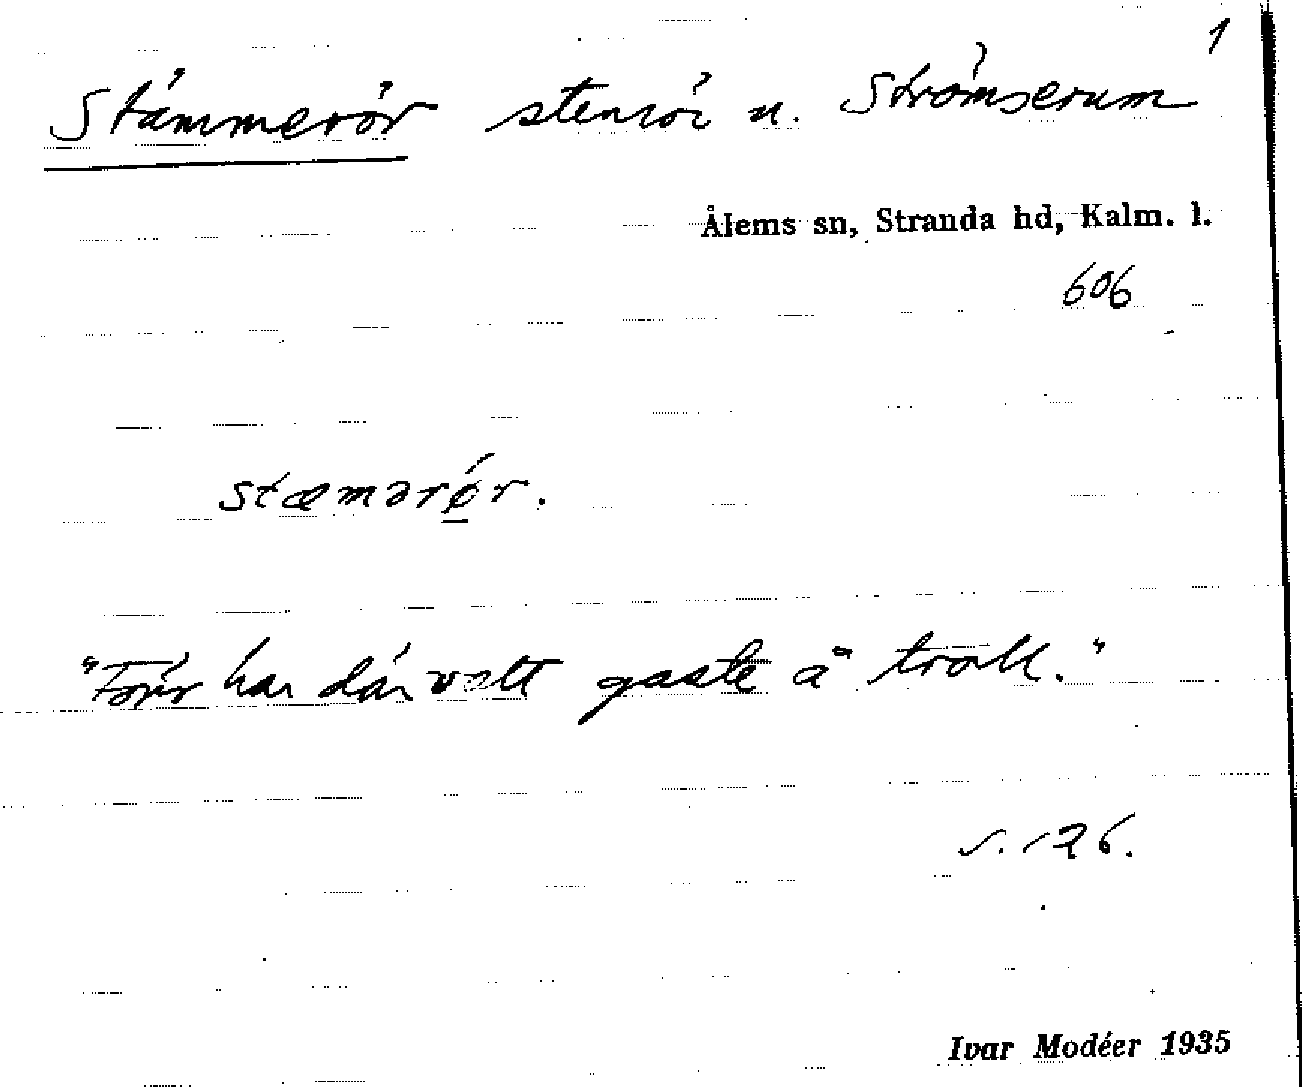 1
Stämmerör stenrör n. Strömserum
Ålems sn, Stranda hd, Kalm. l.
606
stæmərǿr.
"Förr har där vatt gaste å troll."
s. 126.
Ivar Modéer 1935